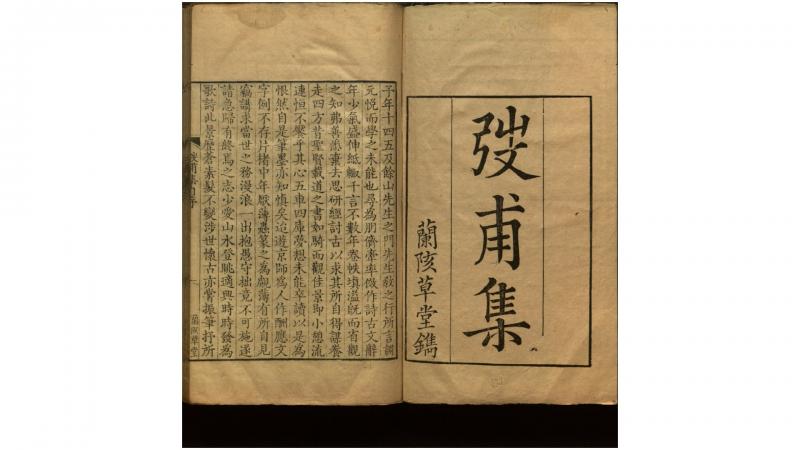 弢甫集
蘭陔草堂鐫
子年十四五及餘山先生之門先生敎之行所言調
元悅而學之未能也尋爲朋儕牽率倣作詩古文辭
年少氣盛伸紙輒千言不數年卷帙塡溢旣而省觀
之知弗善棄去思研經討古以求其所自得謀養
走四方昔聖賢載道之書如騎而觀佳景即小憇流
連恒不槩乎其心五車四庫夢想未能卒讀以是爲
恨然自是筆墨亦知愼矣迨遊京師爲人作酬應文
字例不存片楮中年厭薄蟲篆之爲有所自見
竊講求當世之務漫浪一出抱愚守拙竟不可施遂
請急歸有終焉之志少愛山水登眺適興時時發爲
歌詩此景歷蒼素髮不變涉世懷古亦嘗振筆抒所
弢甫集自序
蘭陔草堂